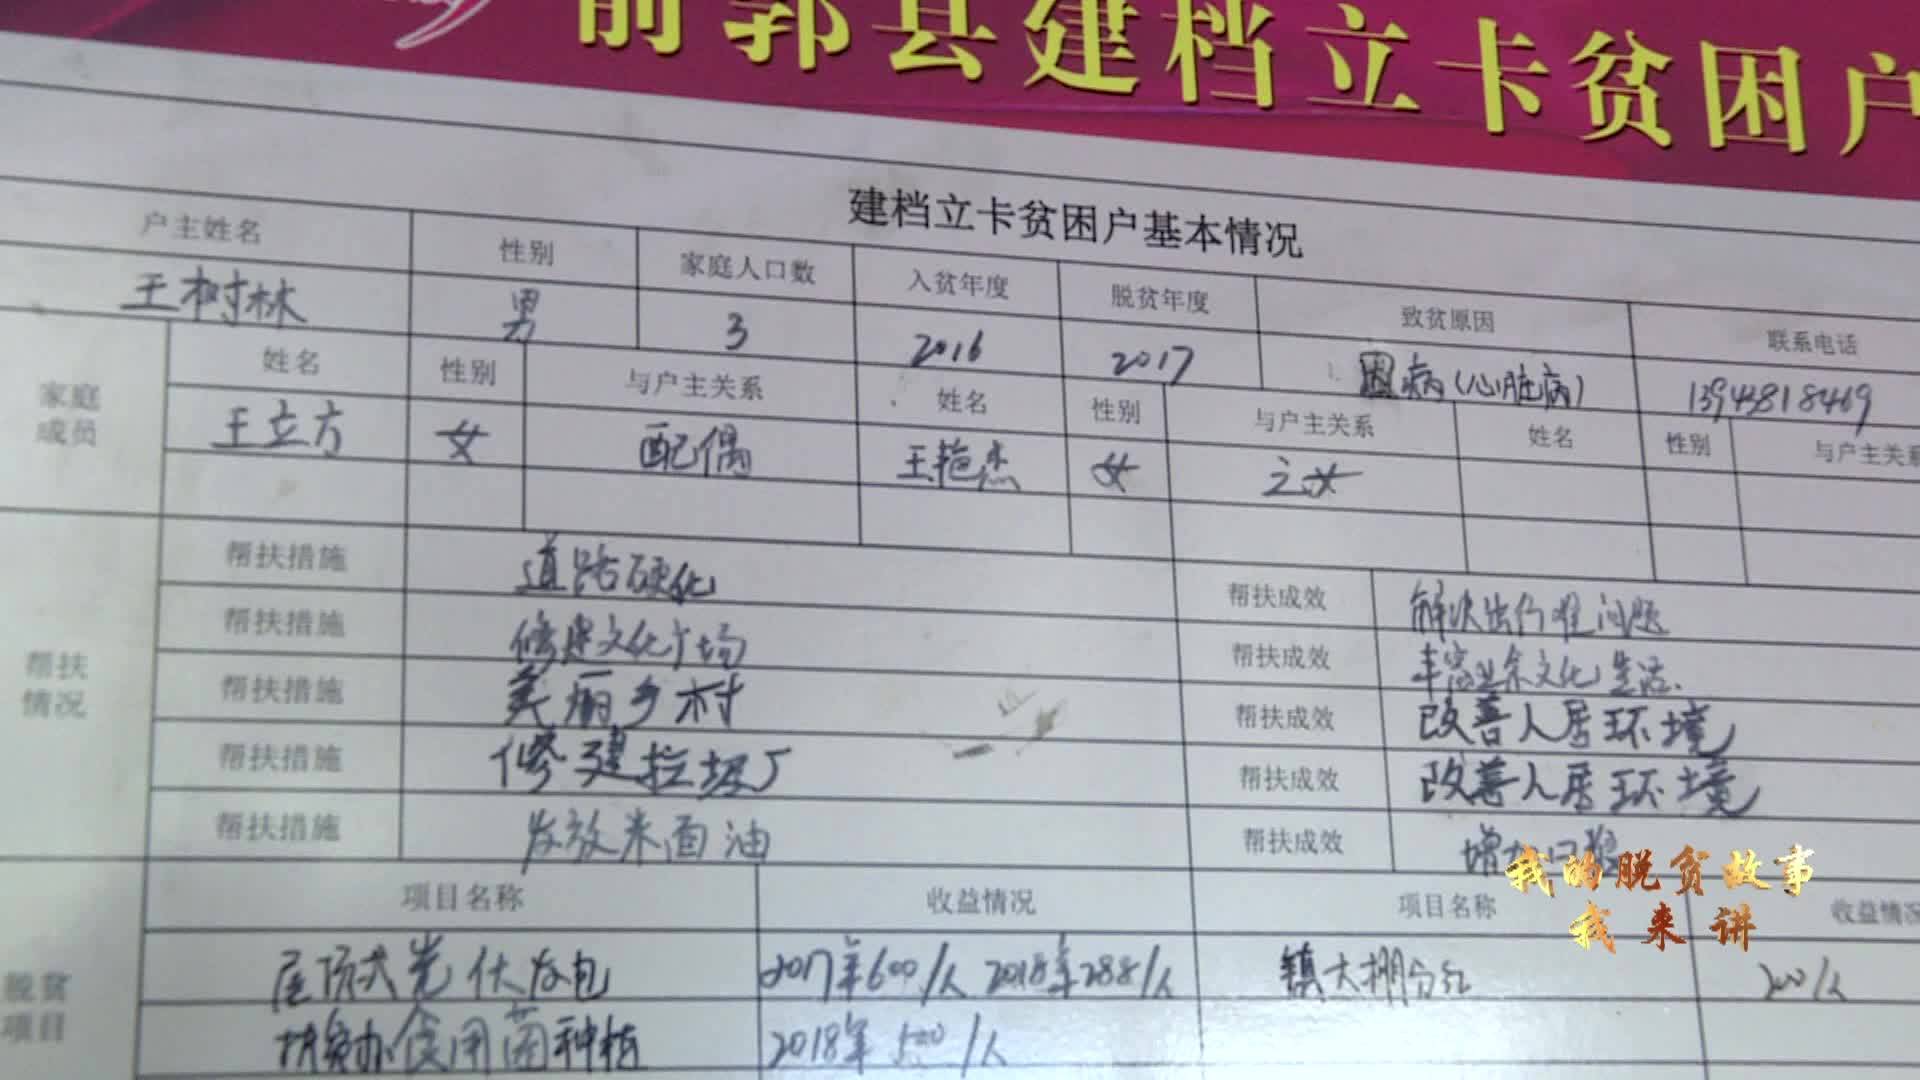 前郭县建档立卡贫困户
建档立卡贫困户基本情况
户主姓名 性别 家庭人口数 入贫年度 脱贫年度 致贫原因 联系电话
王树林 男 3 2016 2017 因病(心脏病) 13943818469
家庭成员 姓名 性别 与户主关系 姓名 性别 与户主关系 姓名 性别 与户主关系
王立方 女 配偶 王艳杰 女 之女
帮扶情况
帮扶措施 道路硬化 帮扶成效 解决出行难问题
帮扶措施 修建文化广场 帮扶成效 丰富业余文化生活.
帮扶措施 美丽乡村 帮扶成效 改善人居环境
帮扶措施 修建垃圾厂 帮扶成效 改善人居环境
帮扶措施 发放米面油 帮扶成效 增加口粮
脱贫项目 项目名称 收益情况 项目名称 收益情况
屋顶式光伏发包 2017年600/人 2018年288/人 镇大棚分红 200/人
扶贫办食用菌种植 2018年500/人
我的脱贫故事
我来讲